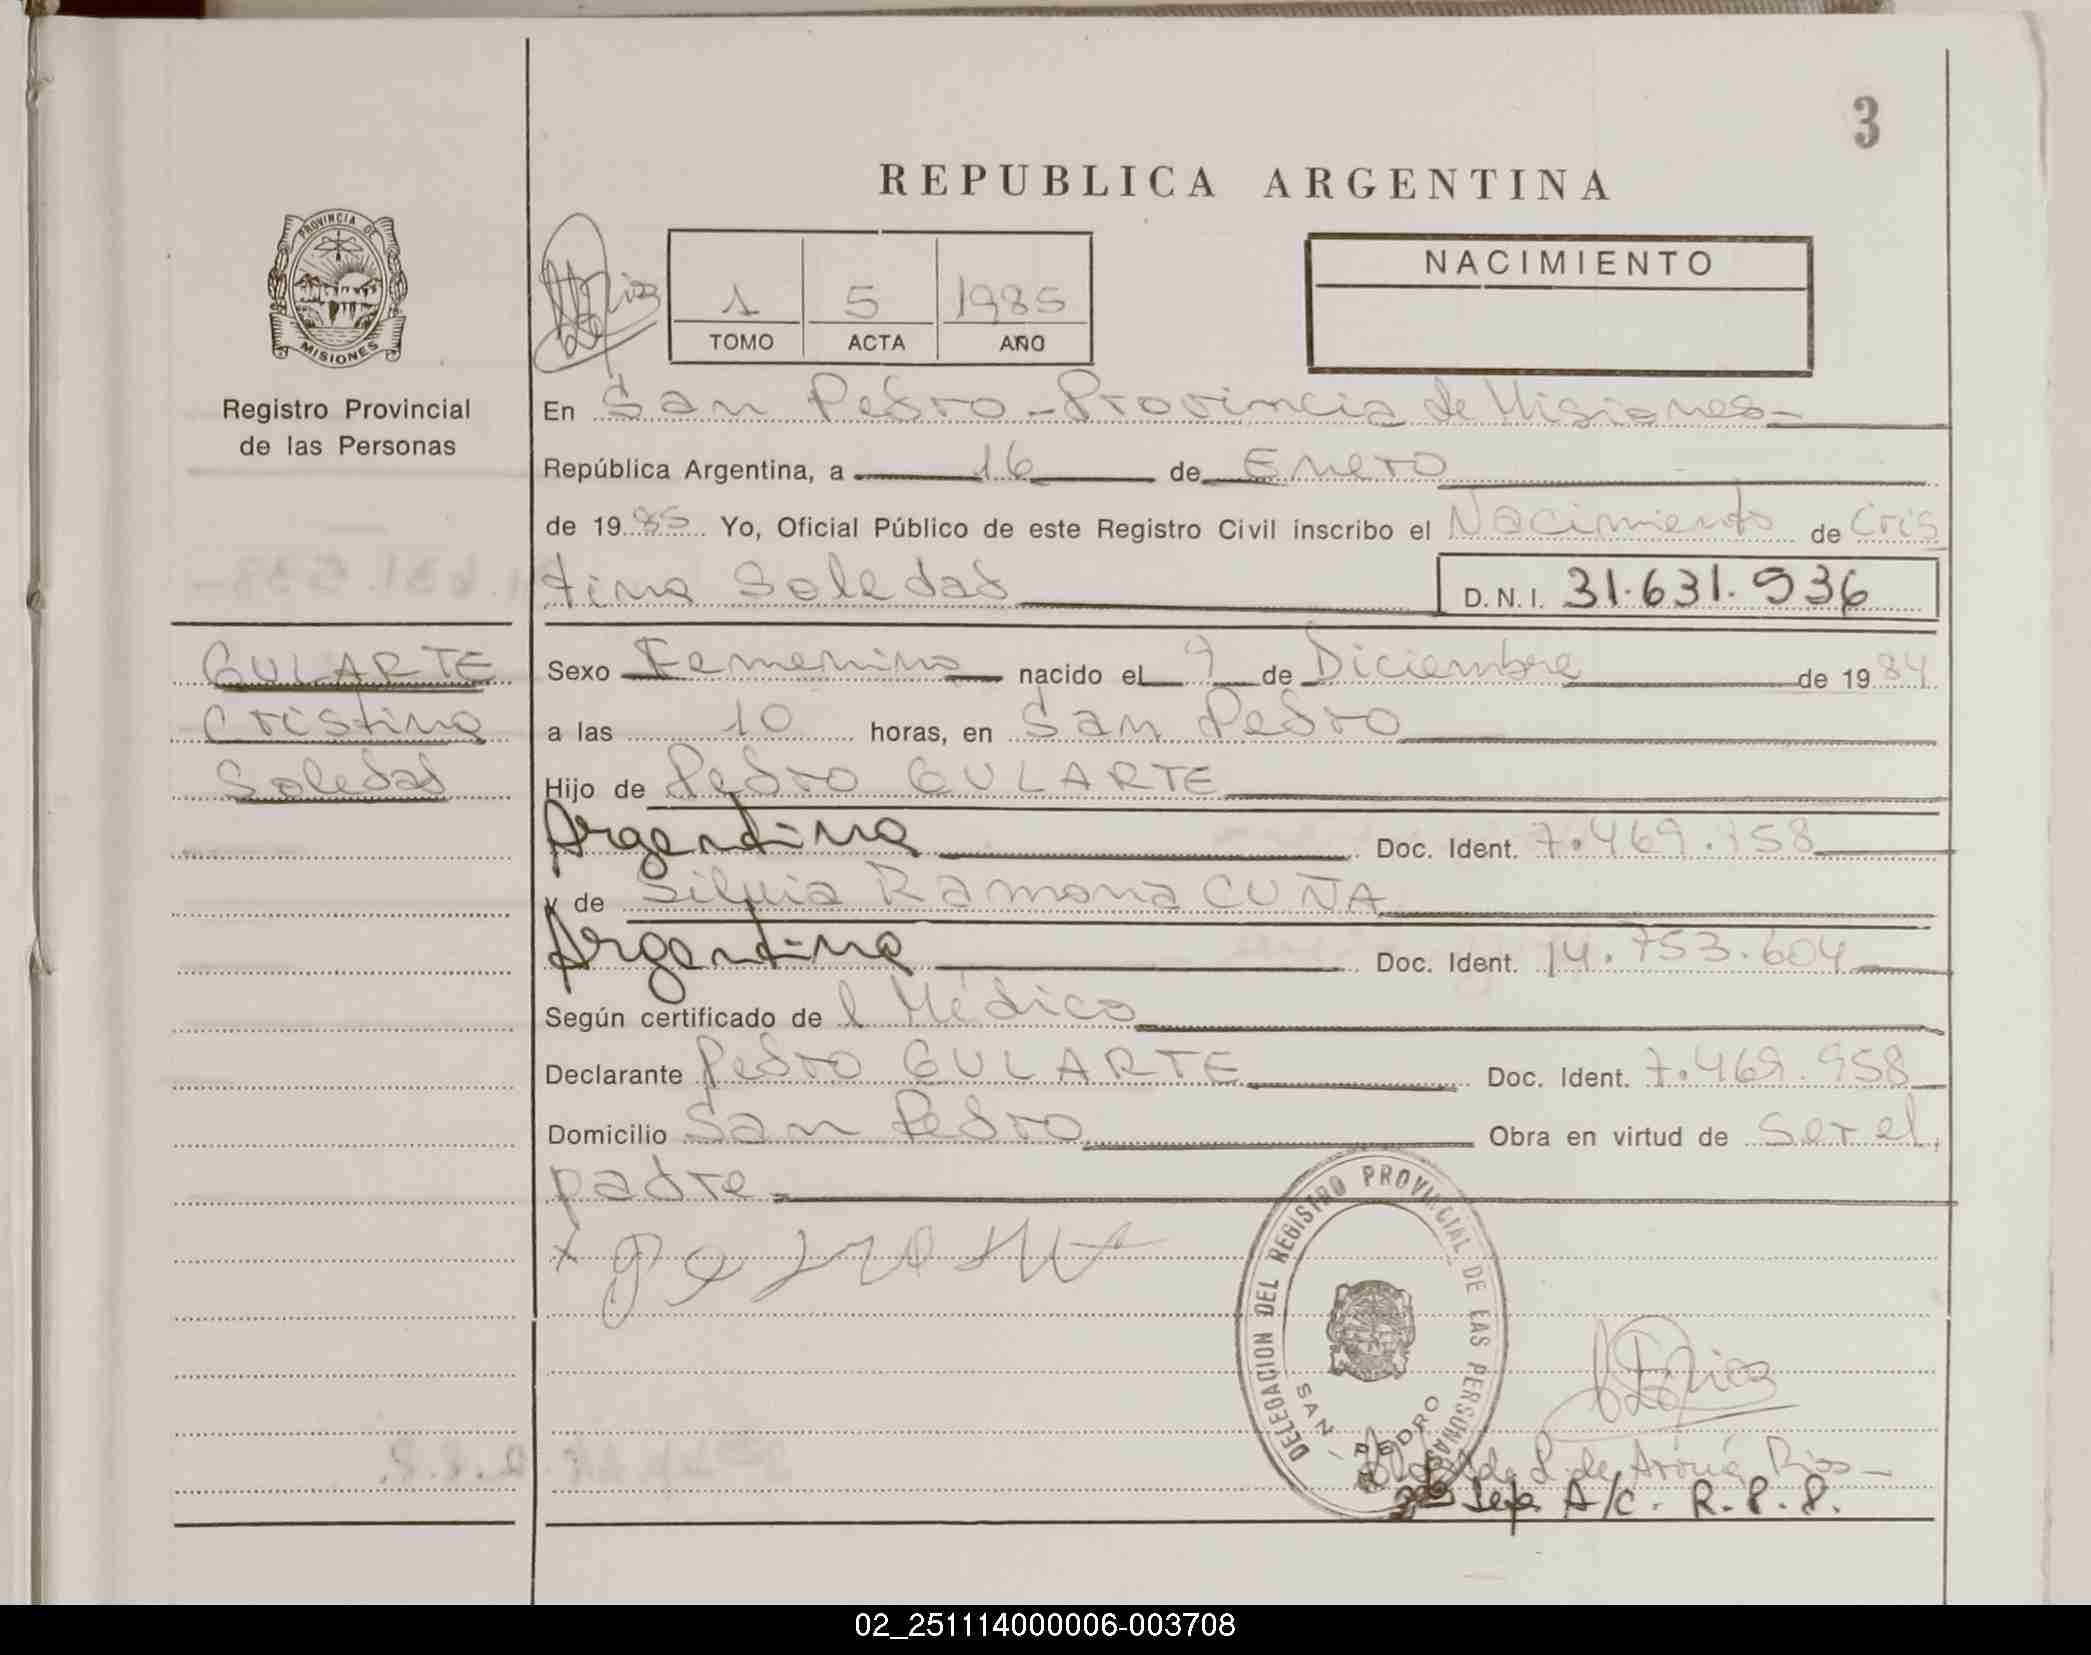 3
REPUBLICA ARGENTINA
PROVINCIA DE
MISIONES
Registro Provincial
de las Personas
1 5 1985
TOMO ACTA AÑO
NACIMIENTO
En San Pedro - Provincia de Misiones -
República Argentina, a 16 de Enero
de 1985 Yo, Oficial Público de este Registro Civil inscribo el Nacimiento de Cris
tina Soledad D.N.I. 31.631.936
GULARTE
Cristina
Soledad
Sexo Femenino nacido el 9 de Diciembre de 1984
a las 10 horas, en San Pedro
Hijo de Pedro GULARTE
Argentina Doc. Ident. 7.469.958
y de Silvia Ramona CUÑA
Argentina Doc. Ident. 14.753.604
Según certificado de l Médico
Declarante Pedro GULARTE Doc. Ident. 7.469.958
Domicilio San Pedro Obra en virtud de ser el
padre
DELEGACION DEL REGISTRO PROVINCIAL DE LAS PERSONAS
SAN PEDRO
Rios -
Jefe A/C. R.P.P.
02_251114000006-003708